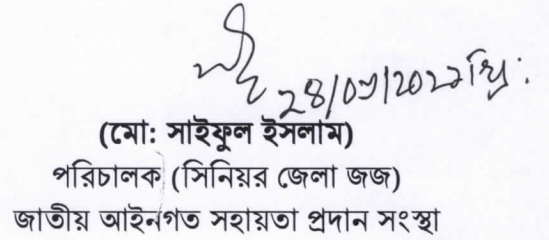 (মো: সাইফুল ইসলাম)
পরিচালক (সিনিয়র জেলা জজ)
জাতীয় আইনগত সহায়তা প্রদান সংস্থা